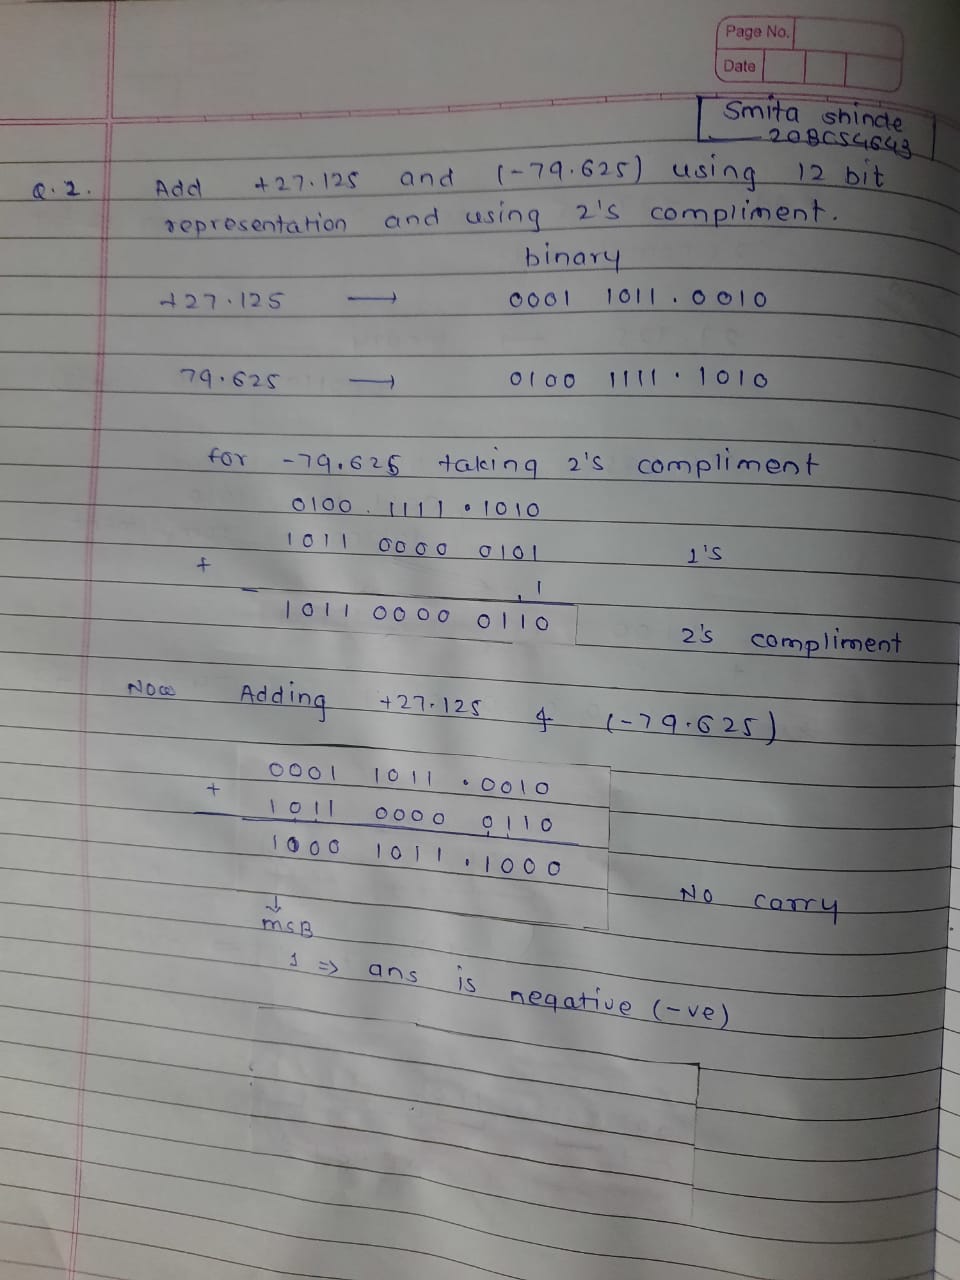 Page No.
Date
Smita shinde
20BCS4643
Q.2. Add +27.125 and (-79.625) using 12 bit
representation and using 2's compliment.
binary
+27.125 → 0001 1011.0010
79.625 → 0100 1111.1010
for -79.625 taking 2's compliment
0100 . 1111.1010
1011 0000 0101 1's
+ 1
1011 0000 0110 2's compliment
Now Adding +27.125 & (-79.625)
0001 1011.0010
+ 1011 0000 0110
1000 1011.1000 No carry
↓
MSB
1 ⇒ ans is negative (-ve)